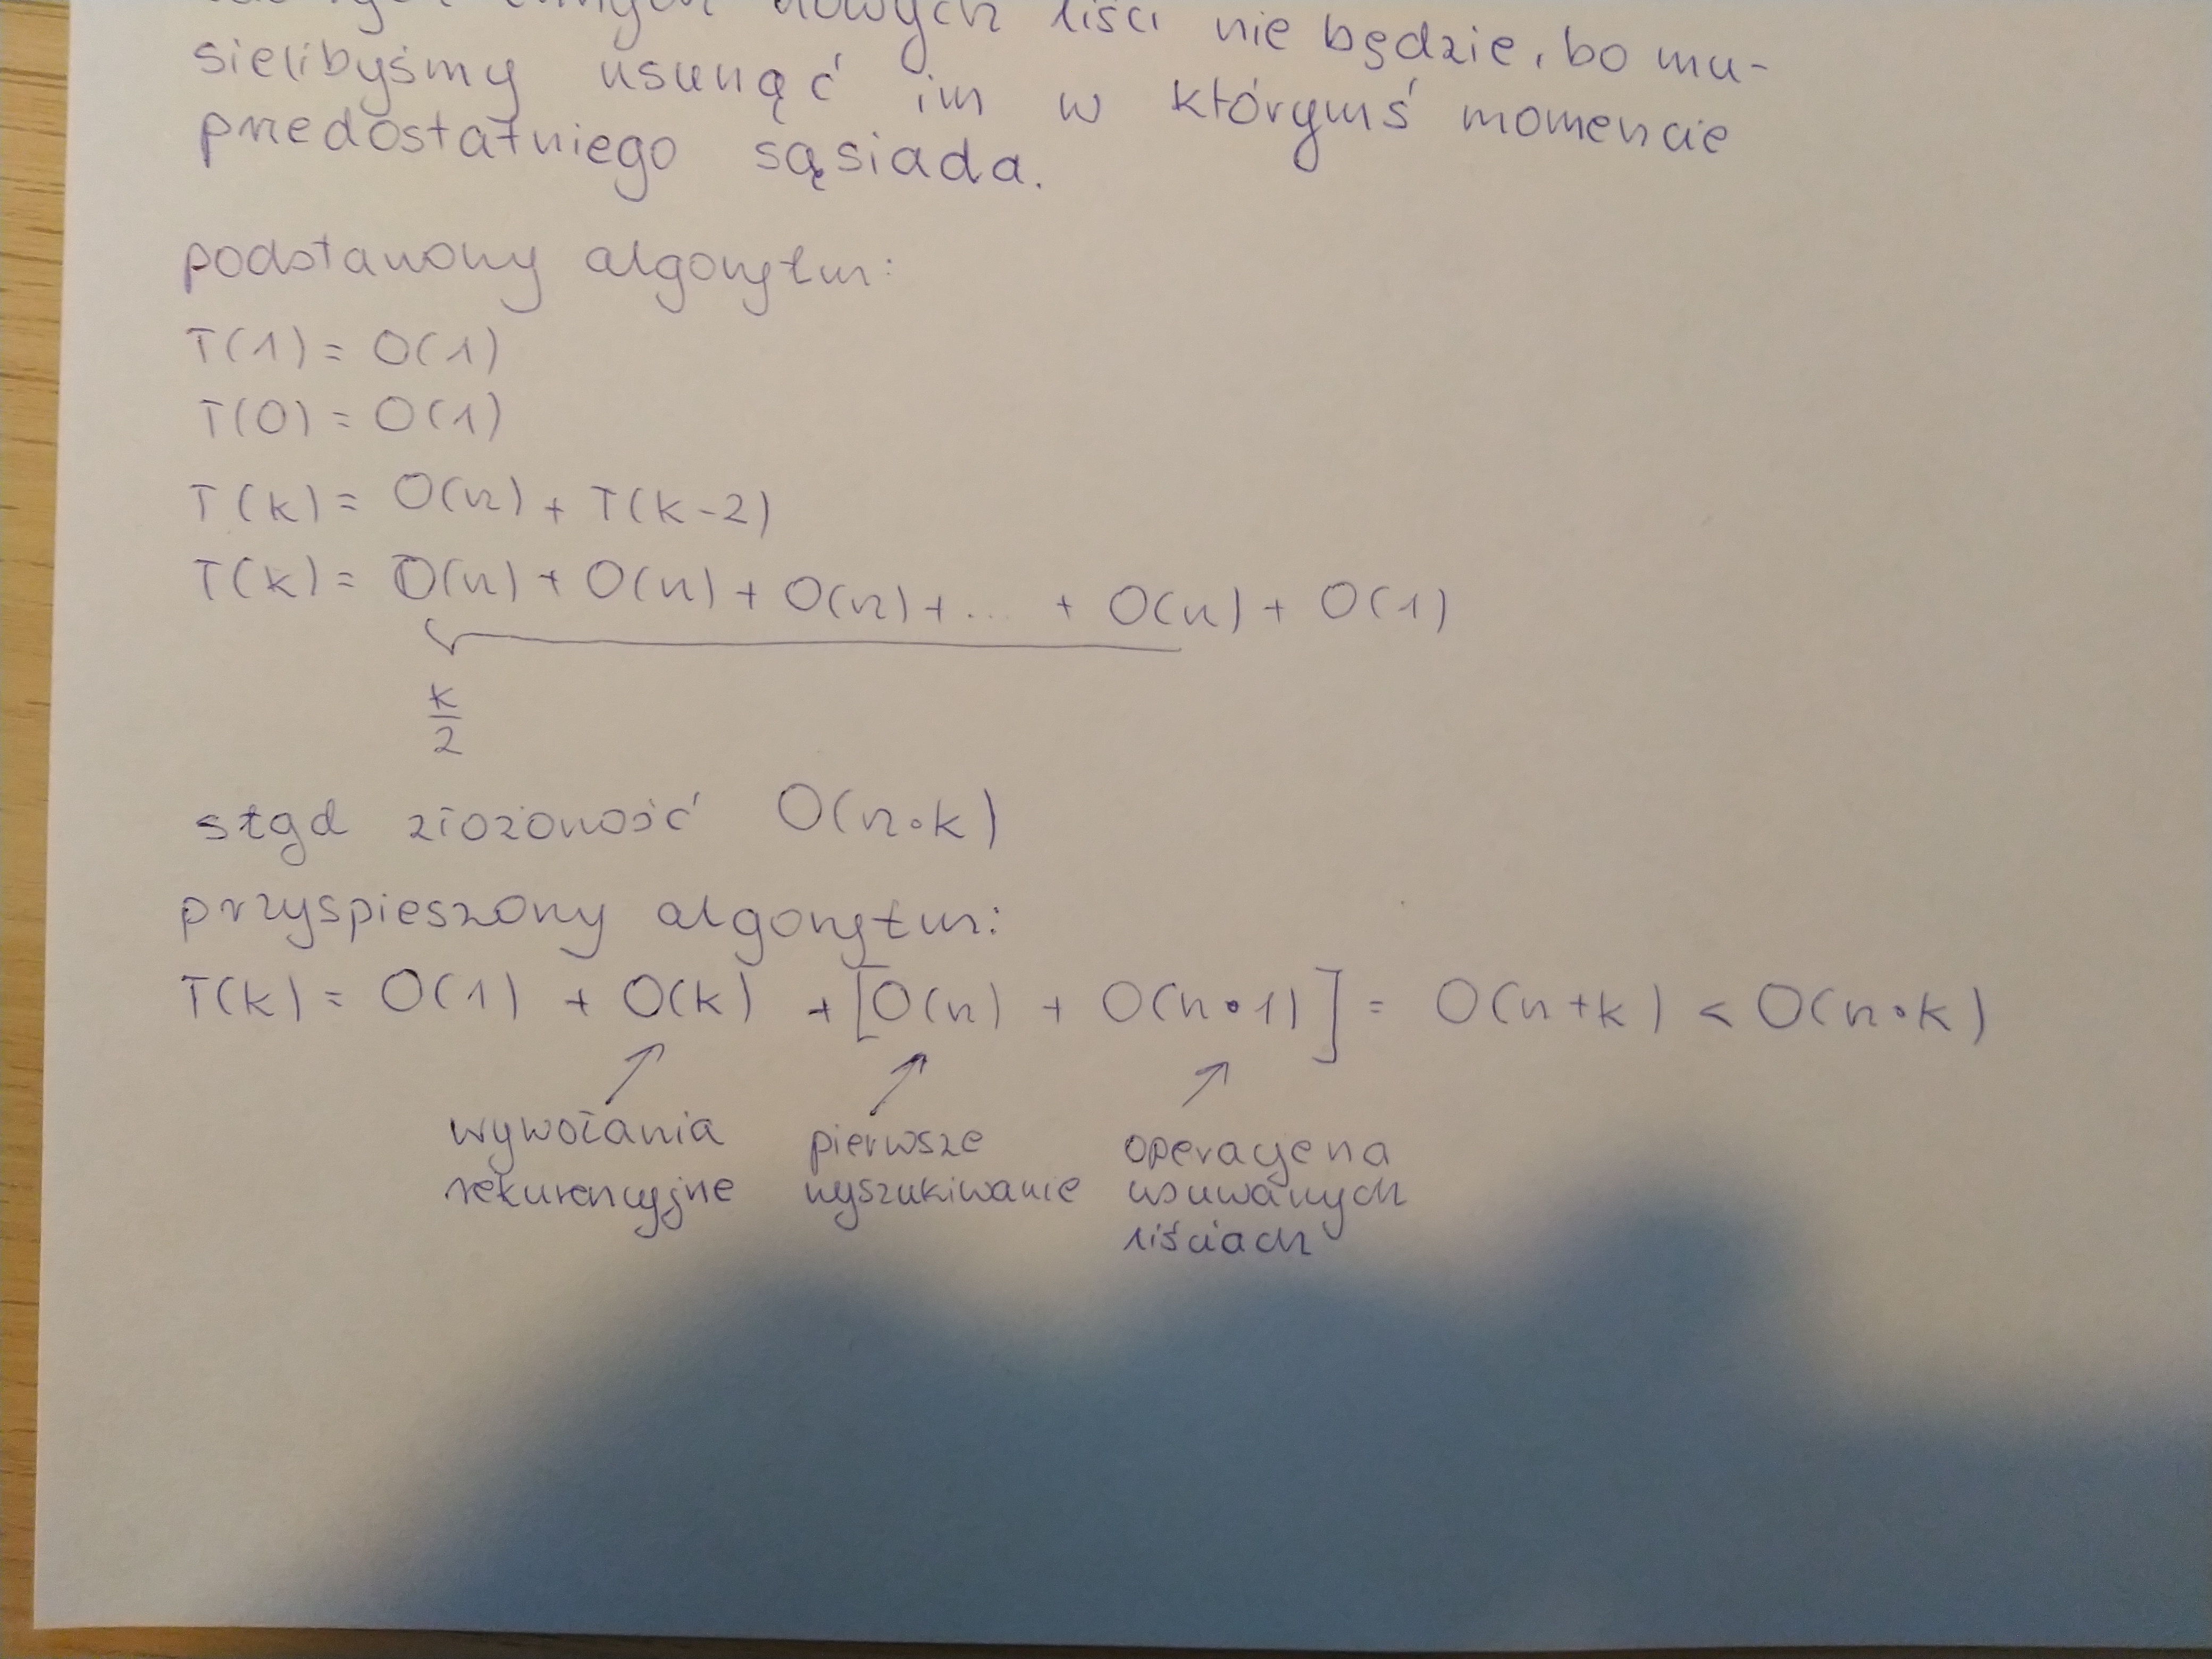 nowych liści nie będzie, bo mu-
sielibyśmy usunąć im w którymś momencie
przedostatniego sąsiada.
podstawowy algorytm:
T(1) = O(1)
T(0) = O(1)
T(k) = O(n) + T(k-2)
T(k) = O(n) + O(n) + O(n) + ... + O(n) + O(1)
k/2
stąd złożoność O(n•k)
przyspieszony algorytm:
T(k) = O(1) + O(k) + [O(n) + O(n•1)] = O(n+k) < O(n•k)
wywołania pierwsze operacje na
rekurencyjne wyszukiwanie usuwanych
liściach